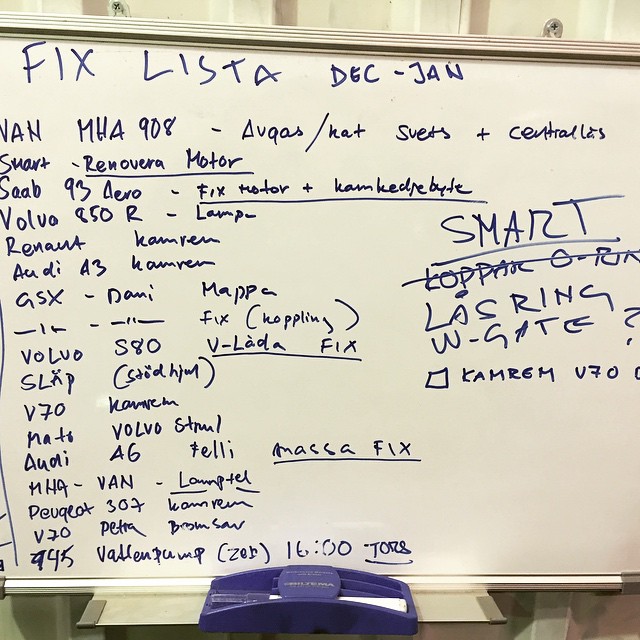 FIX LISTA DEC - JAN
VAN MHA 908 - Avgas/kat svets + centrallås
Smart - Renovera Motor
Saab 93 Aero - Fix motor + kamkedjebyte
Volvo 850 R - Lampa
Renaut kamrem
Audi A3 kamrem
GSX - Dani Mappa
-"- - -"- FIX (koppling)
VOLVO S80 V-Låda FIX
SLÄP (stödhjul)
V70 kamrem
Mats VOLVO Strul
Audi A6 Felli massa FIX
MHA - VAN - Lamptel
Peugeot 307 kamrem
V70 Petra Bromsar
945 Vattenpump (zeb) 16:00 TORS
SMART
KOPPAR O-RIN
LÅSRING
W-GATE ?
KAMREM V70
BILTEMA